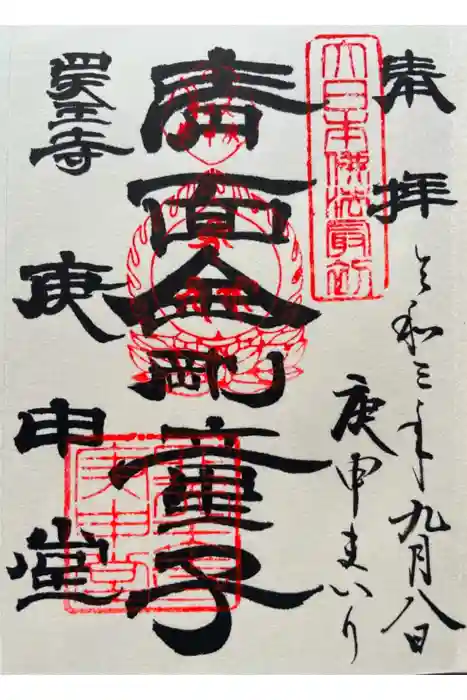 奉拝
令和三年九月八日
大日本佛法最初
庚申まいり
青面金剛童子
四天王寺
庚申堂